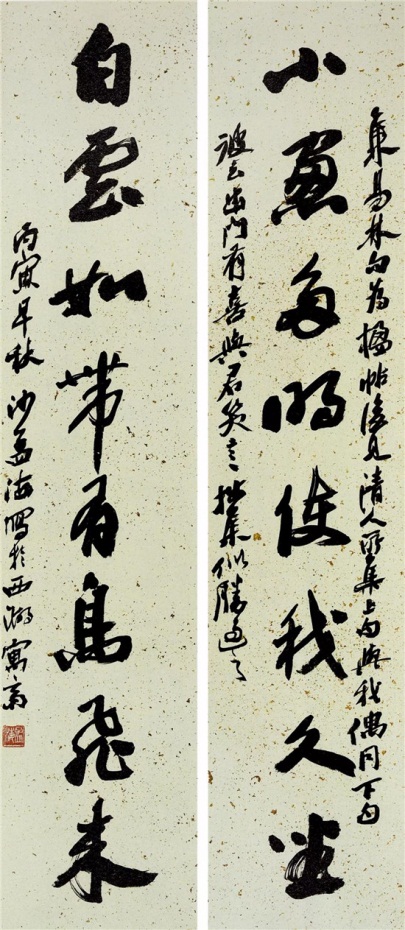 集易林句為楹帖後見清人所集上句與我偶同下句
小窗多明使我久坐
彼云出門有喜與君笑言拙集似勝過
白雲如帶有鳥飛來
丙寅早秋沙孟海寫於西湖寓齋